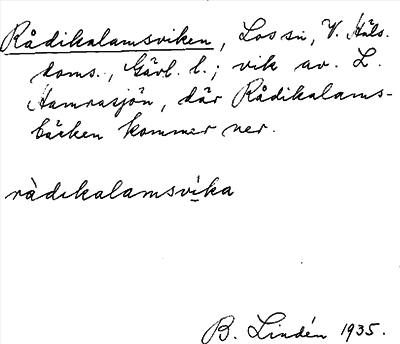 Rådikalamsviken, Los sn, V. Häls.
doms., Gävl. l.; vik av. L.
Hamrasjön, där Rådikalams-
bäcken kommer ner.
ràdıkalamsvika
B. Lindén 1935.